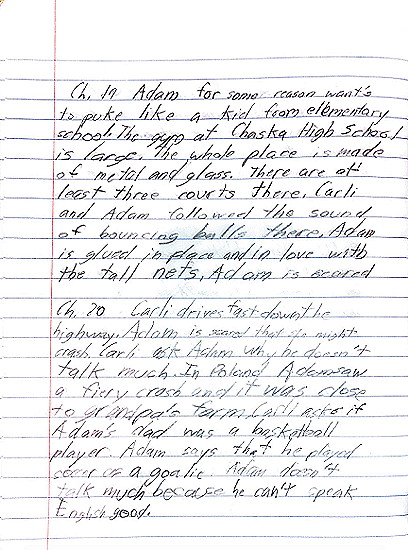 Ch. 19 Adam for some reason want's
to puke like a kid from elementary
school. The gym at Chaska High School
is large. The whole place is made
of metal and glass. There are at
least three courts there. Carli
and Adam followed the sound
of bouncing balls there. Adam
is glued in place and in love with
the tall nets. Adam is scared
Ch. 20 Carli drives fast down the
highway. Adam is scared that she might
crash. Carli ask Adam why he doesn't
talk much. In Poland Adam saw
a firey crash and it was close
to grandpa's farm. Carli asks if
Adam's dad was a basketball
player. Adam says that he played
soccer as a goalie. Adam doesn't
talk much because he can't speak
English good.